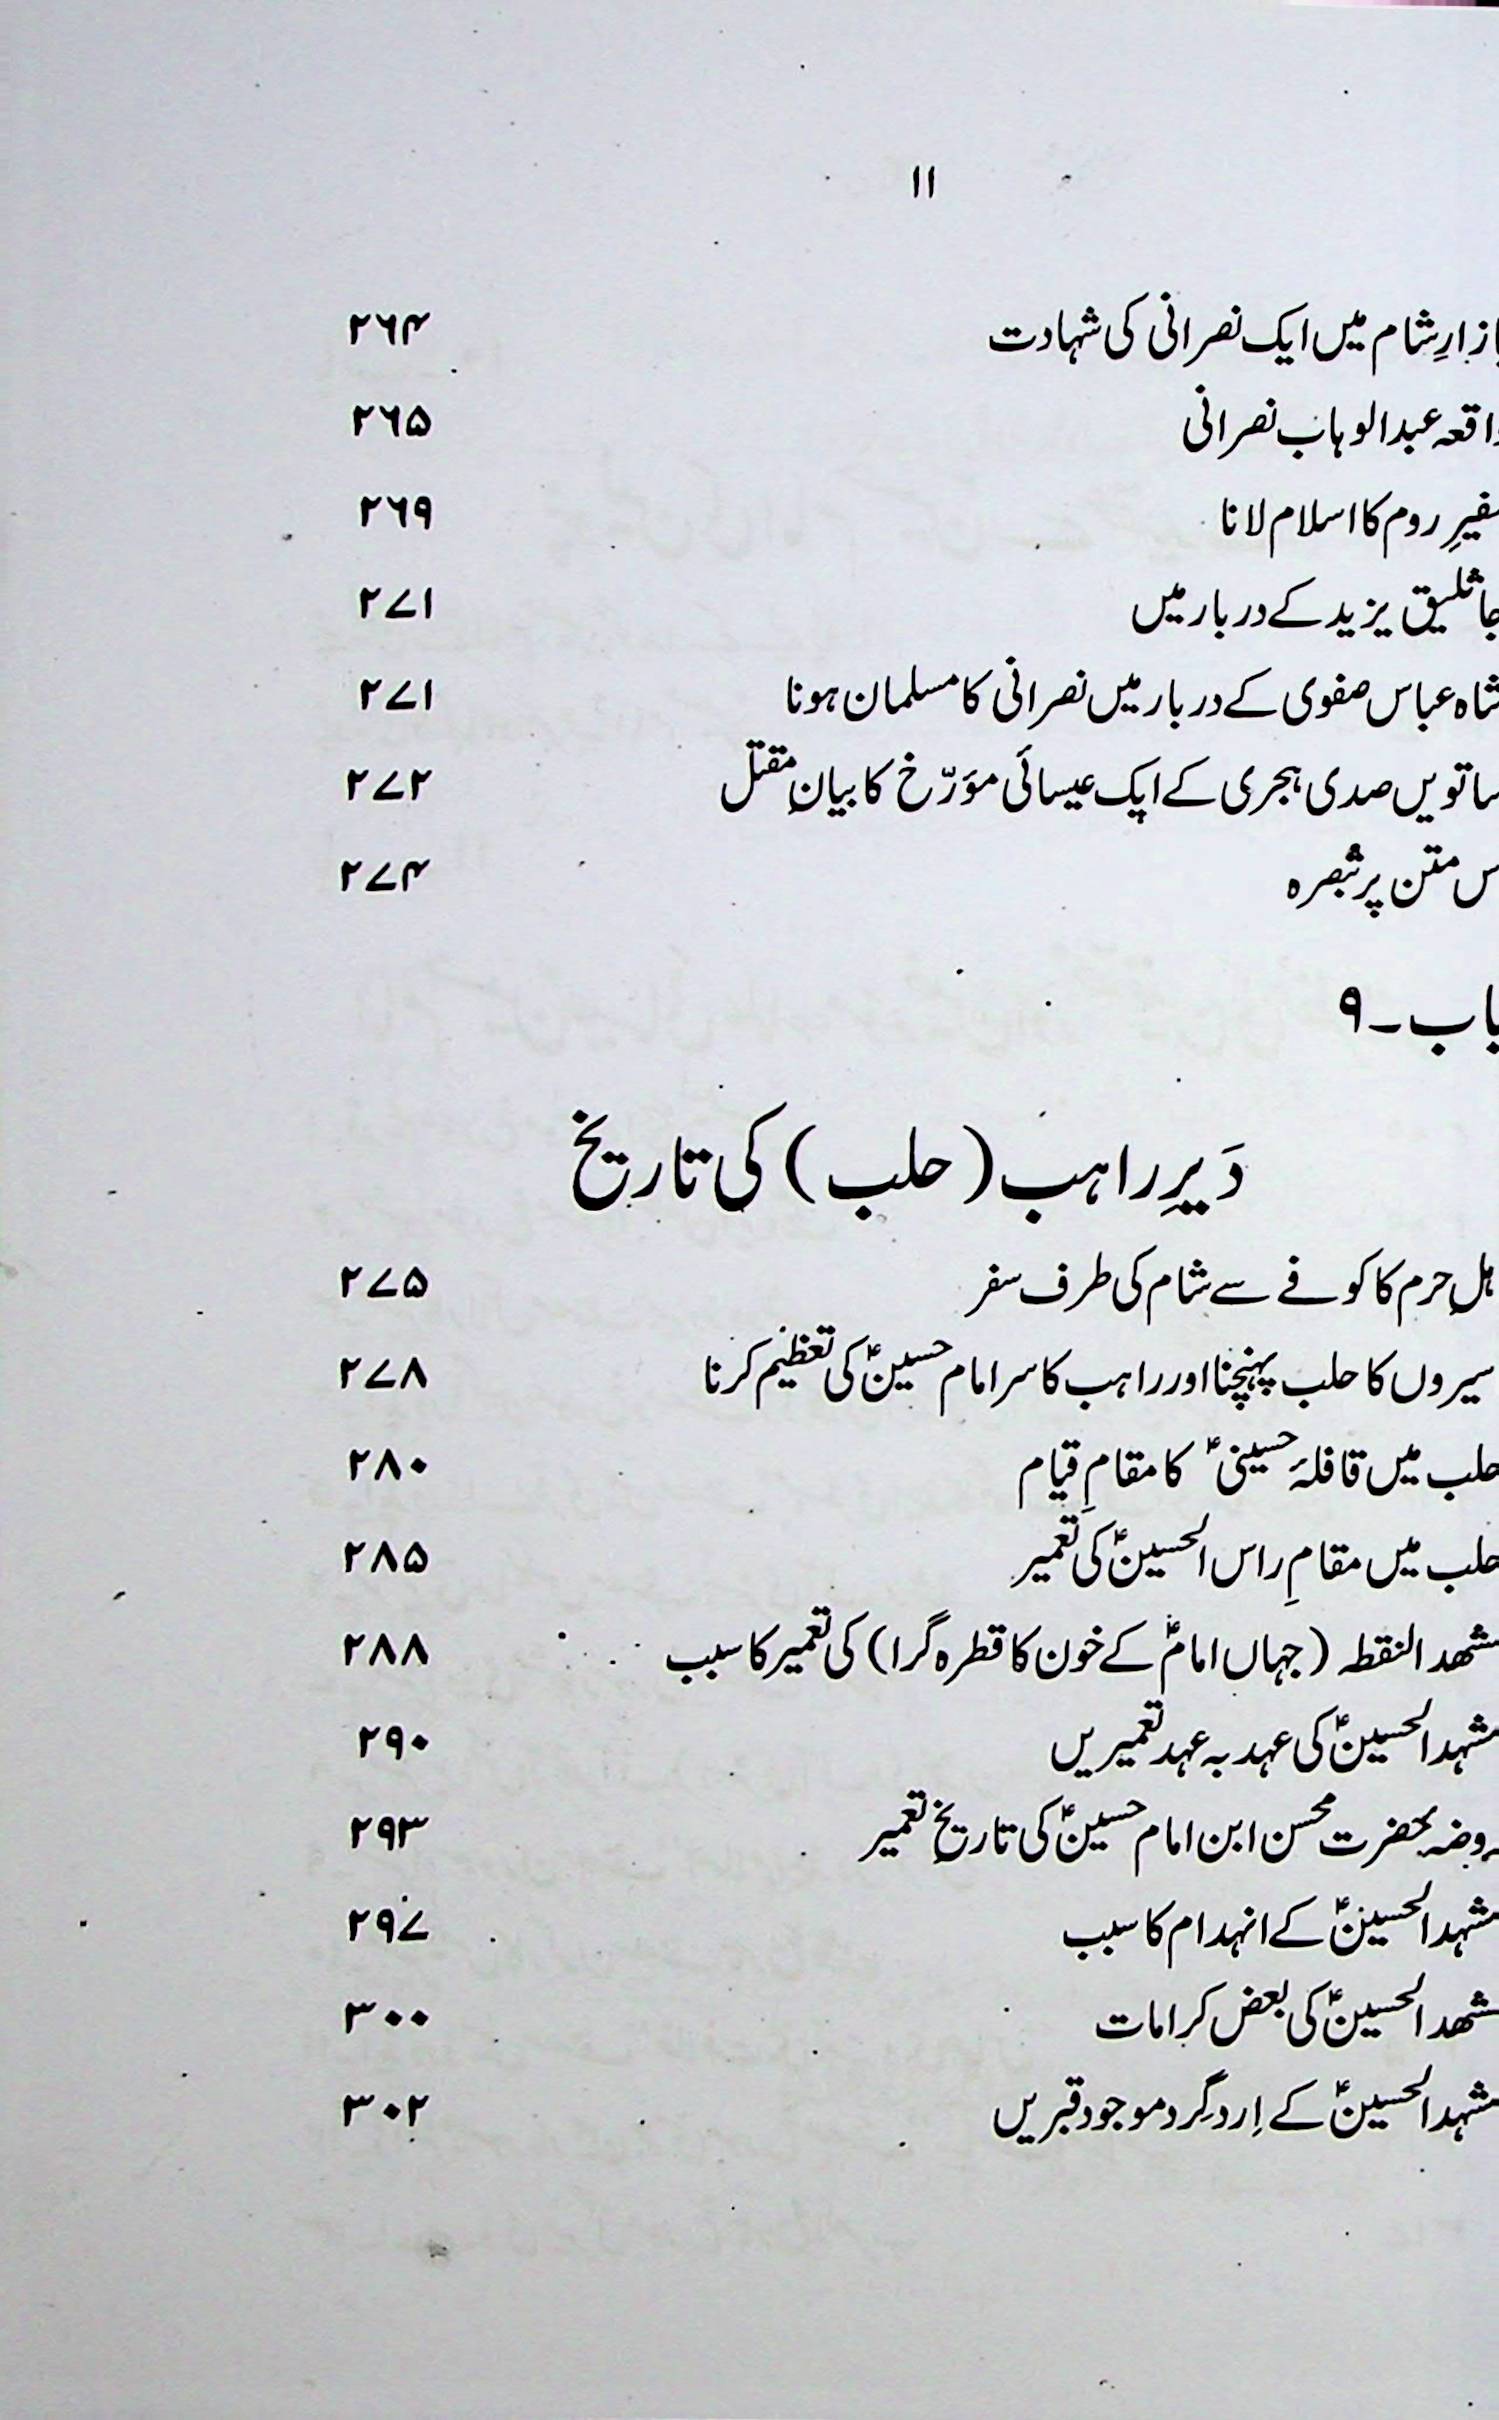 ۱۱
بازارِ شام میں ایک نصرانی کی شہادت ۲۶۴
واقعہ عبدالوہاب نصرانی ۲۶۵
سفیرِ روم کا اسلام لانا ۲۶۹
جاثلیق یزید کے دربار میں ۲۷۱
شاہ عباس صفوی کے دربار میں نصرانی کا مسلمان ہونا ۲۷۱
ساتویں صدی ہجری کے ایک عیسائی مؤرّخ کا بیانِ مقتل ۲۷۲
اس متن پر تبصرہ ۲۷۴
باب ۔ ۹
دَیرِ راہب (حلب) کی تاریخ
اہلِ حرم کا کوفے سے شام کی طرف سفر ۲۷۵
اسیروں کا حلب پہنچنا اور راہب کا سر امام حسینؑ کی تعظیم کرنا ۲۷۸
حلب میں قافلۂ حسینیؑ کا مقامِ قیام ۲۸۰
حلب میں مقامِ راس الحسینؑ کی تعمیر ۲۸۵
مشھد النقطہ (جہاں امامؑ کے خون کا قطرہ گرا) کی تعمیر کا سبب ۲۸۸
مشہد الحسینؑ کی عہد بہ عہد تعمیریں ۲۹۰
روضۂ حضرت محسن ابن امام حسینؑ کی تاریخِ تعمیر ۲۹۳
مشہد الحسینؑ کے انہدام کا سبب ۲۹۷
مشھد الحسینؑ کی بعض کرامات ۳۰۰
مشہد الحسینؑ کے اِرد گِرد موجود قبریں ۳۰۲